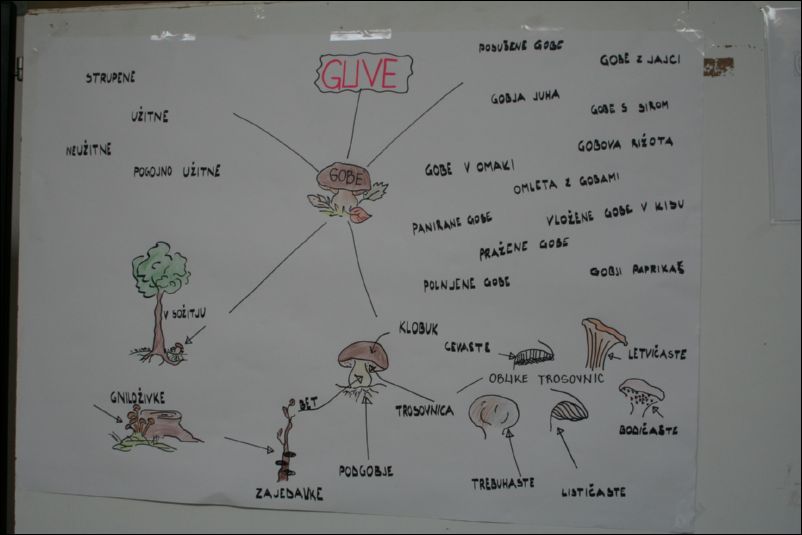 GLIVE
GOBE
STRUPENE
UŽITNE
NEUŽITNE
POGOJNO UŽITNE
POSUŠENE GOBE
GOBE Z JAJCI
GOBJA JUHA
GOBE S SIROM
GOBOVA RIŽOTA
GOBE V OMAKI
OMLETA Z GOBAMI
PANIRANE GOBE
VLOŽENE GOBE V KISU
PRAŽENE GOBE
POLNJENE GOBE
GOBJI PAPRIKAŠ
V SOŽITJU
GNILOŽIVKE
ZAJEDAVKE
KLOBUK
BET
TROSOVNICA
PODGOBJE
OBLIKE TROSOVNIC
CEVASTE
LETVIČASTE
BODIČASTE
TREBUHASTE
LISTIČASTE